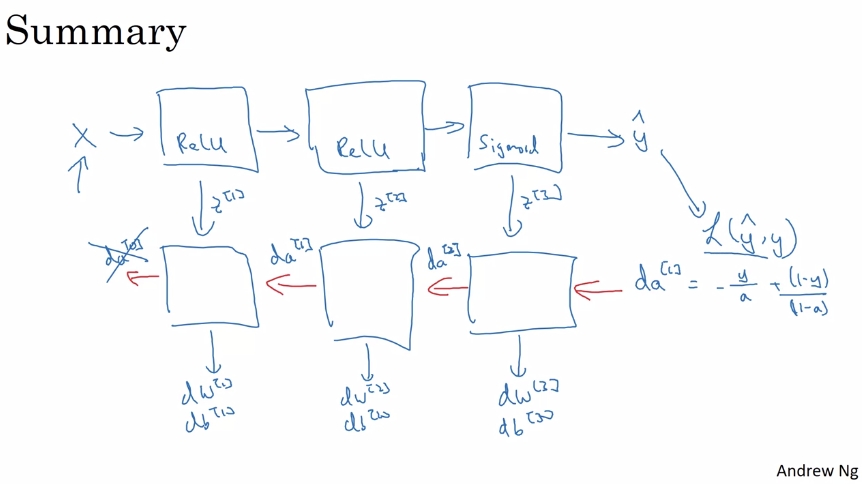 Summary
X → ReLU → ReLU → Sigmoid → ŷ
z^[1] z^[2] z^[3]
L(ŷ, y)
da^[0] da^[1] da^[2] da^[L] = - y/a + (1-y)/(1-a)
dw^[1] dw^[2] dw^[3]
db^[1] db^[2] db^[3]
Andrew Ng